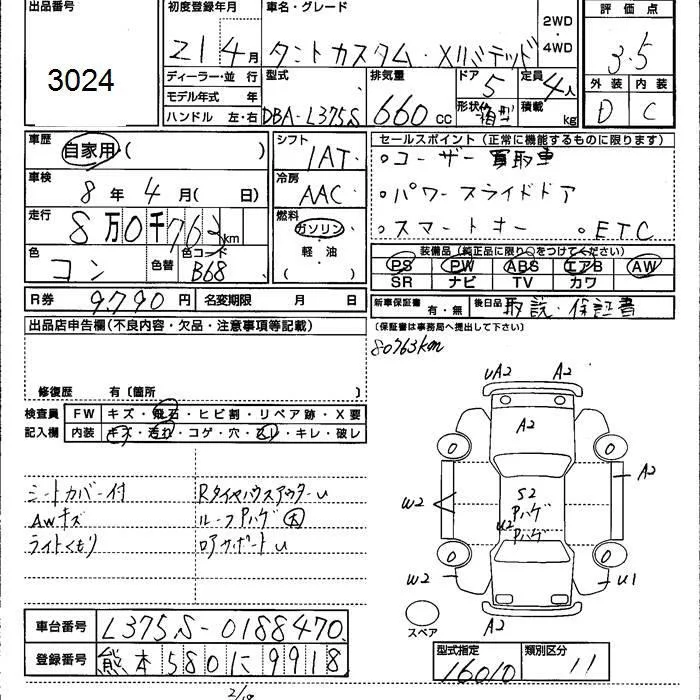 出品番号
3024
初度登録年月
21 4月
車名・グレード
タントカスタム・Xリミテッド
2WD・4WD
評価点
3.5
外装 内装
D C
ディーラー・並行
モデル年式 年
ハンドル 左・右
型式
DBA-L375S
排気量
660 cc
ドア
5
形状 箱型
定員
4人
積載 kg
車歴
自家用・( )
車検
8年 4月( 日)
走行
8万0千763km
色
コン
色替
色コード
B68
シフト
IAT
冷房
AAC
燃料
ガソリン・軽油
・( )
セールスポイント(正常に機能するものに限ります)
。ユーザー買取車
。パワースライドドア
。スマートキー 。ETC
装備品(純正品に限り○をつけてください)
PS PW ABS エアB AW
SR ナビ TV カワ
R券 9,790円
名変期限 月 日
新車保証書 有・無
後日品 取説・保証書
(保証書は事務局へ提出して下さい)
80763km
出品店申告欄(不良内容・欠品・注意事項等記載)
修復歴 有〔箇所 〕
検査員記入欄
FW キズ・飛石・ヒビ割・リペア跡・X要
内装 キズ・汚れ・コゲ・穴・スレ・キレ・破レ
シートカバー付
AWキズ
ライトくもり
RタイヤハウスアウターU
ルーフPハゲ大
ロアサポートU
UA2 A2
A2
0 0
A2
W2
S2
Pハゲ
U2
Pハゲ
0 0
W2 U1
スペア
A2
車台番号 L375S-0188470
登録番号 熊本580に9918
型式指定 16010
類別区分 11
2/18